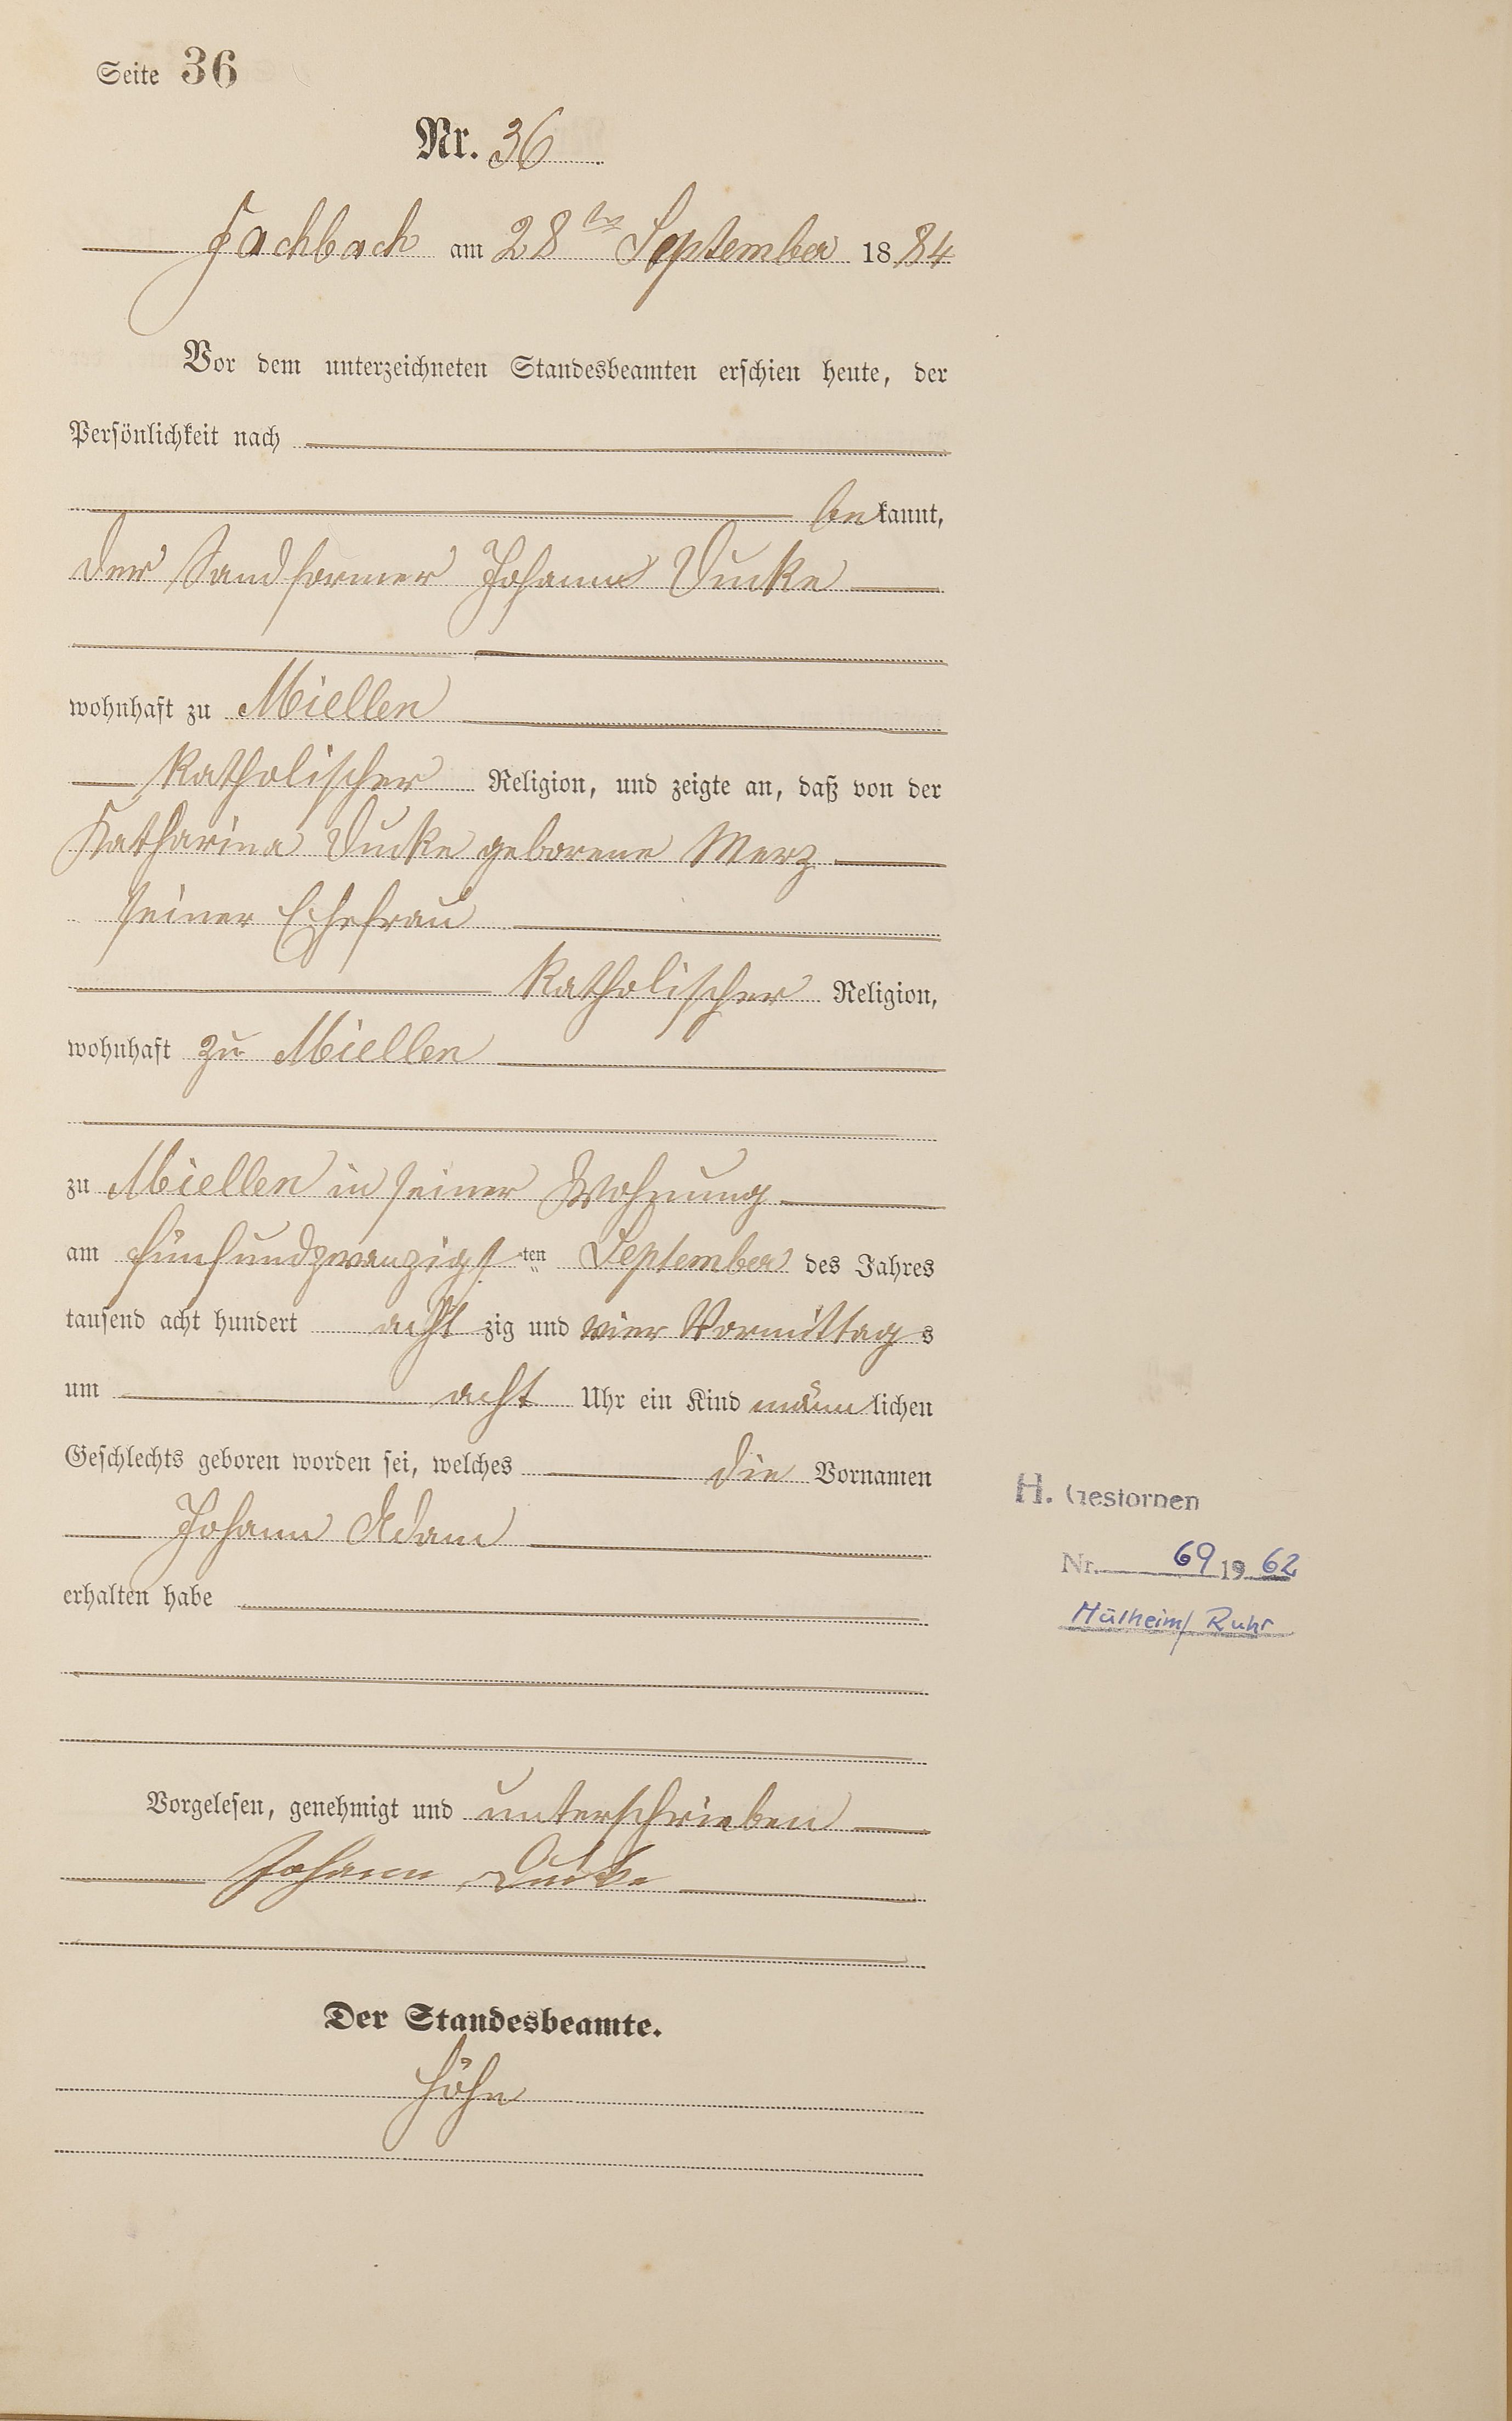 Seite 36
Nr. 36
Fachbach am 28ten September 1884
Vor dem unterzeichneten Standesbeamten erschien heute, der
Persönlichkeit nach
bekannt,
der Sandformer Johann Ducke
wohnhaft zu Miellen
katholischer Religion, und zeigte an, daß von der
Katharina Ducke geborene Merz
seiner Ehefrau
katholischer Religion,
wohnhaft zu Miellen
zu Miellen in seiner Wohnung
am fünfundzwanzigsten September des Jahres
tausend acht hundert acht zig und vier Vormittags
um acht Uhr ein Kind männlichen
Geschlechts geboren worden sei, welches die Vornamen
Johann Adam
erhalten habe
H. Gestorben
Nr. 69 1962
Mülheim/Ruhr
Vorgelesen, genehmigt und unterschrieben
Johann Ducke
Der Standesbeamte.
Höhn